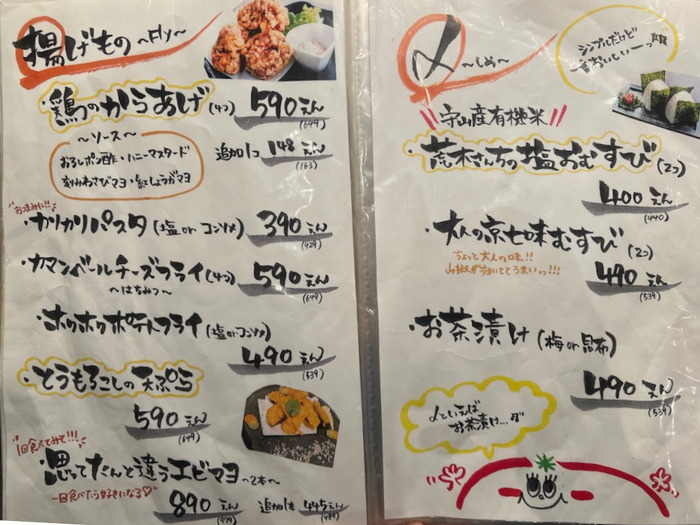 揚げもの ~Fly~
・鶏のからあげ(4つ) 590えん
(649)
~ソース~
おろしポン酢・ハニーマスタード
刻みわさびマヨ・紅しょうがマヨ
追加1つ 148えん
(163)
おつまみに!!
・カリカリパスタ(塩orコンソメ) 390えん
(429)
・カマンベールチーズフライ(4つ) 590えん
~はちみつ~
(649)
・ホクホクポテトフライ(塩orコンソメ)
490えん
(539)
・とうもろこしの天ぷら
590えん
(649)
1回食べてみて!!!
・思ってたんと違うエビマヨ~2本~
一回食べたら好きになる♡
890えん
(979)
追加1本 445えん
(489)
〆 ~しめ~
シンプルだけど
守山産有機米
・荒木さんちの塩おむすび(2コ)
400えん
(440)
・大人の京七味むすび(2コ)
ちょっと大人の味!!
山椒が効いててうまいっ!!!
490えん
(539)
・お茶漬け(梅or昆布)
490えん
(539)
〆といえば
お茶漬け...ダ